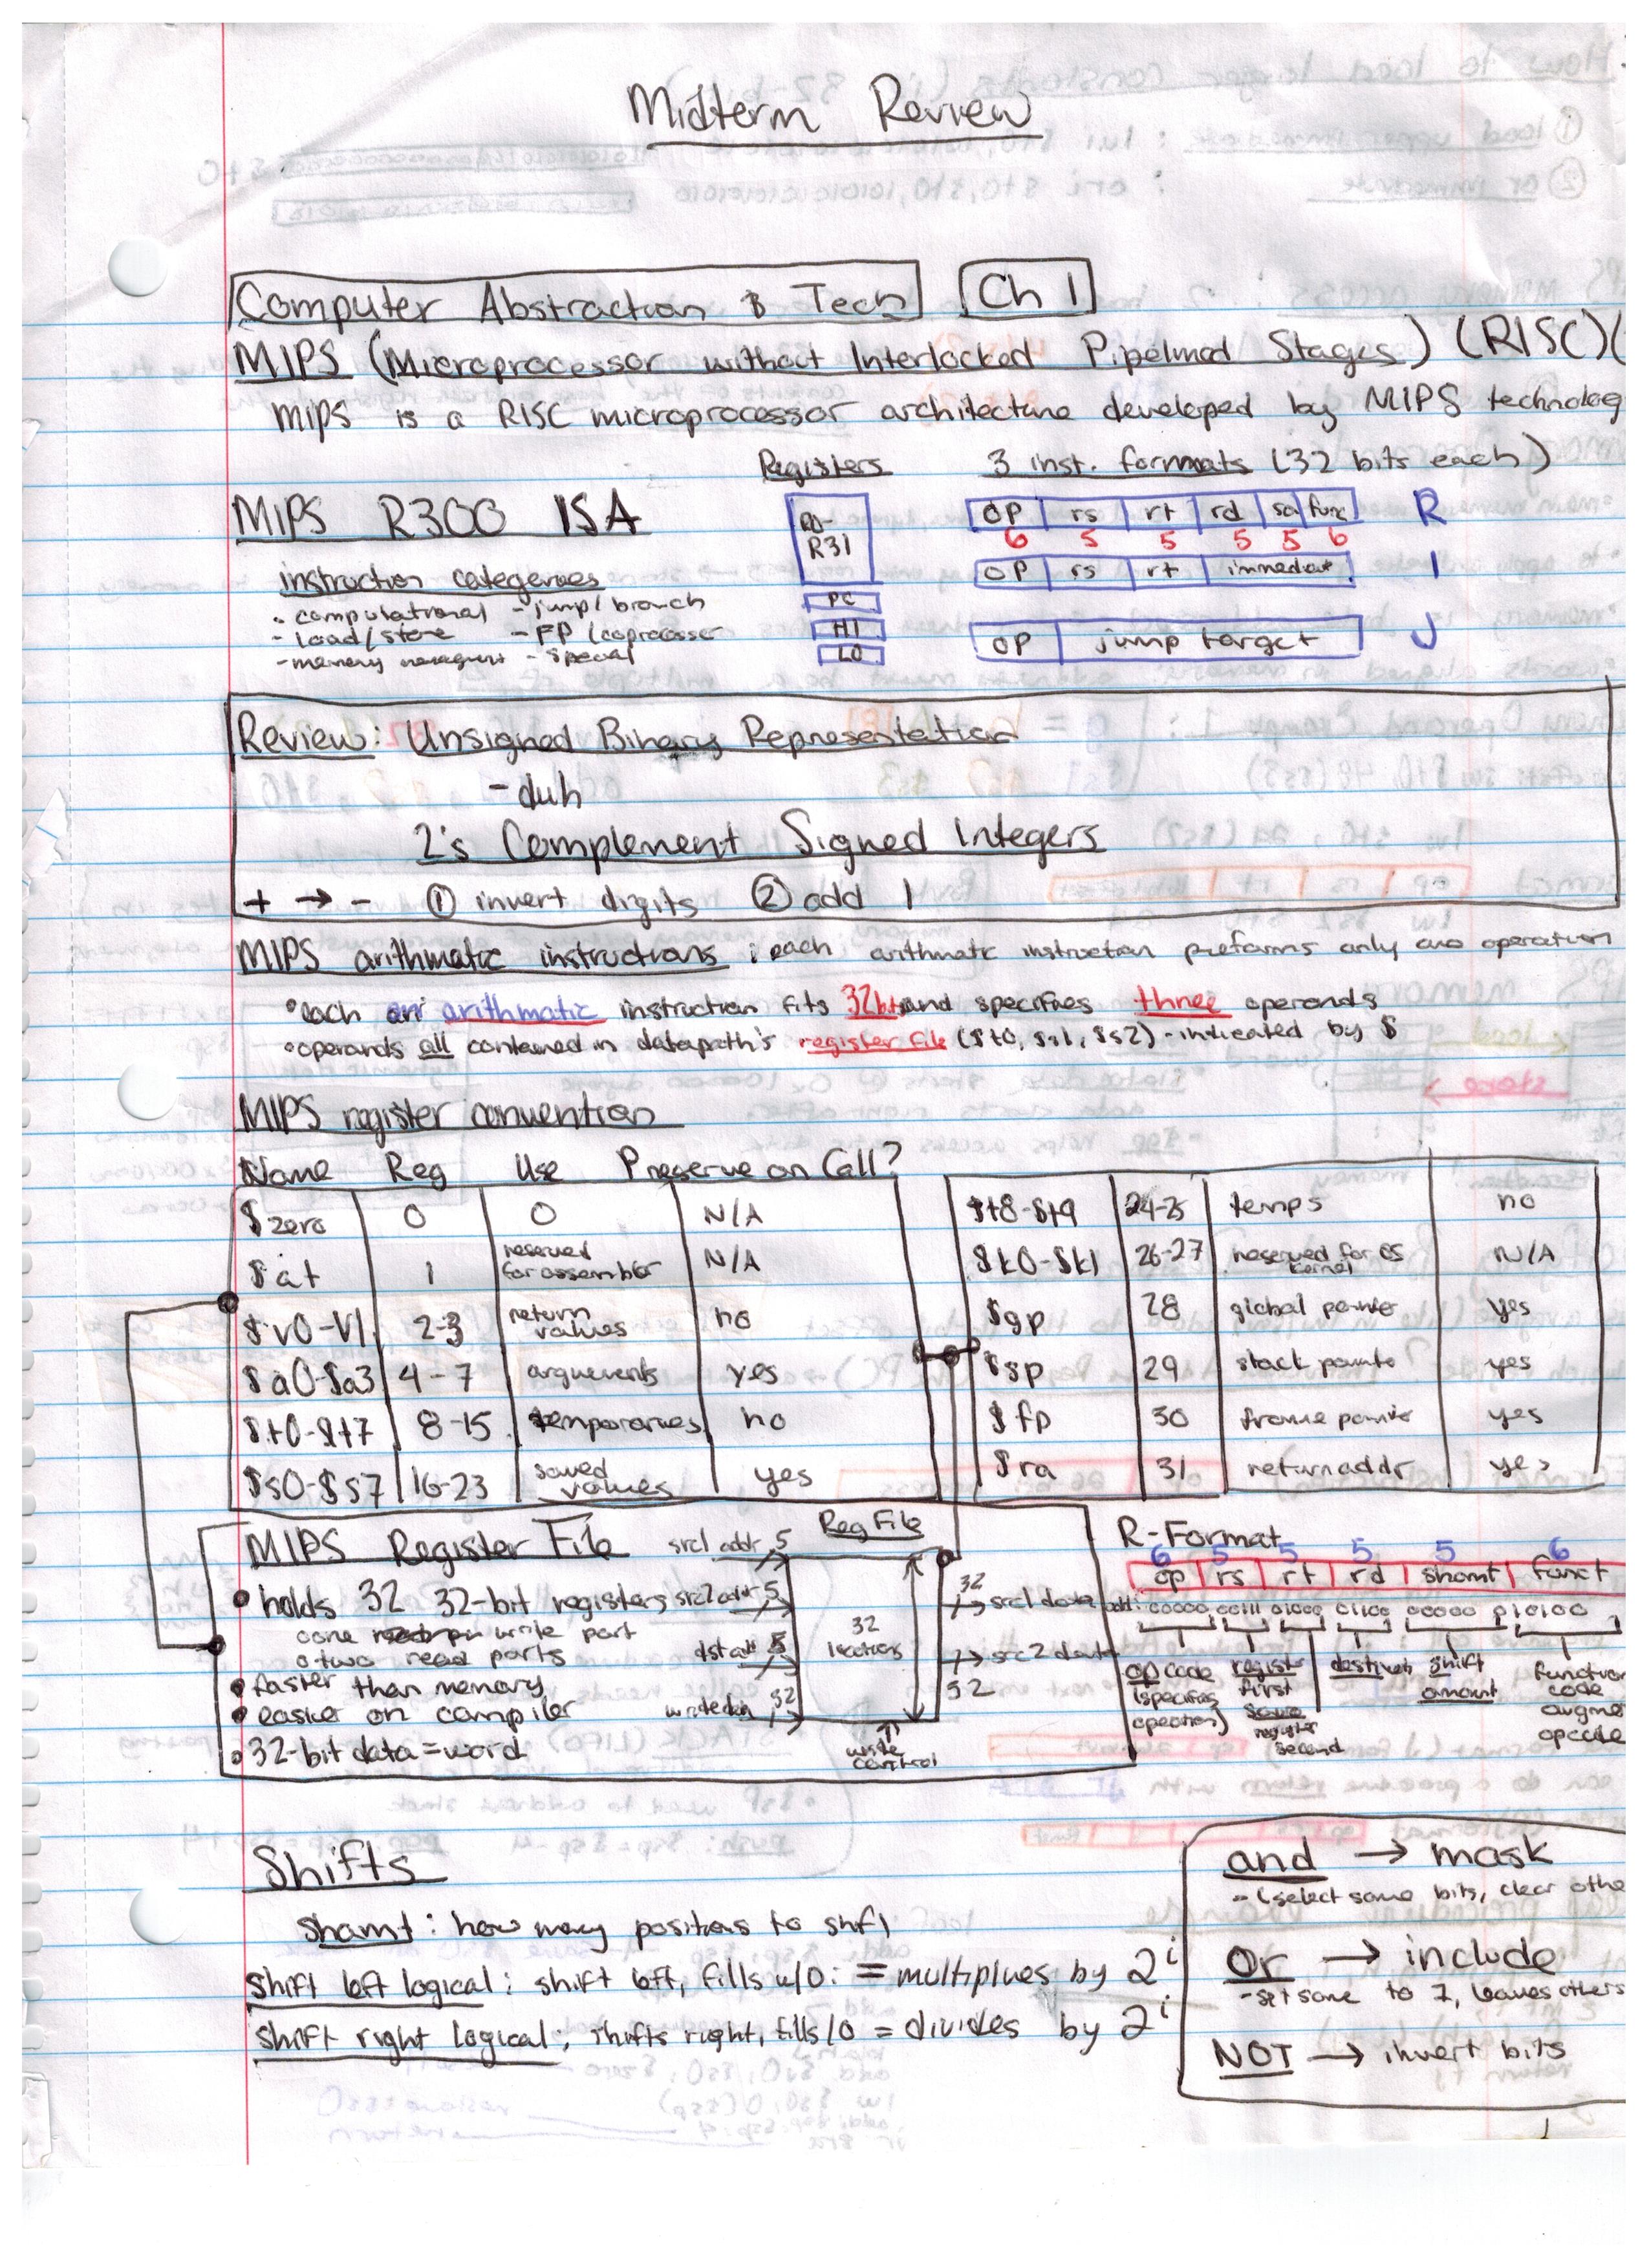 Midterm Review
Computer Abstraction & Tech Ch 1
MIPS (Microprocessor without Interlocked Pipelined Stages) (RISC)(
mips is a RISC microprocessor architecture developed by MIPS technolog
Registers 3 inst. formats (32 bits each)
MIPS R300 ISA
R0-
R31
PC
HI
LO
OP rs rt rd sa func R
6 5 5 5 5 6
OP rs rt immediate I
OP jump target J
instruction categories
- computational - jump/branch
- Load/store - FP/coprocessor
- memory management - special
Review: Unsigned Binary Representation
- duh
2's Complement Signed Integers
+ → - ① invert digits ② add 1
MIPS arithmatic instructions : each arithmatic instruction preforms only one operation
• each ari arithmatic instruction fits 32bits and specifies three operands
• operands all contained in datapath's register file ($t0, $s1, $s2) - indicated by $
MIPS register convention
Name Reg Use Preserve on Call?
$zero 0 0 N/A
$at 1 reserved for assembler N/A
$v0-v1 2-3 return values no
$a0-$a3 4-7 arguements yes
$t0-$t7 8-15 temporaries no
$s0-$s7 16-23 saved values yes
$t8-$t9 24-25 temps no
$k0-$k1 26-27 reserved for OS kernel N/A
$gp 28 global pointer yes
$sp 29 stack pointer yes
$fp 30 frame pointer yes
$ra 31 return addr yes
MIPS Register File
• holds 32 32-bit registers
o one write port
o two read ports
• faster than memory
• easier on compiler
• 32-bit data = word
Reg File
src1 addr 5
src2 addr 5
dst addr 5
write data 32
32
locations
32
src1 data
src2 data
32
write
control
R-Format
6 5 5 5 5 6
op rs rt rd shamt funct
add: 00000 00111 01000 01100 00000 010100
op code
(specifies
operation)
register
first
source
register
second
destination
shift
amount
function
code
augme
opcode
Shifts
Shamt: how many positions to shift
Shift left logical: shift left, fills w/0: = multiplies by 2ⁱ
Shift right logical: shifts right, fills/0 = divides by 2ⁱ
and → mask
- (select some bits, clear othe
Or → include
- set some to 1, leaves others
NOT → invert bits